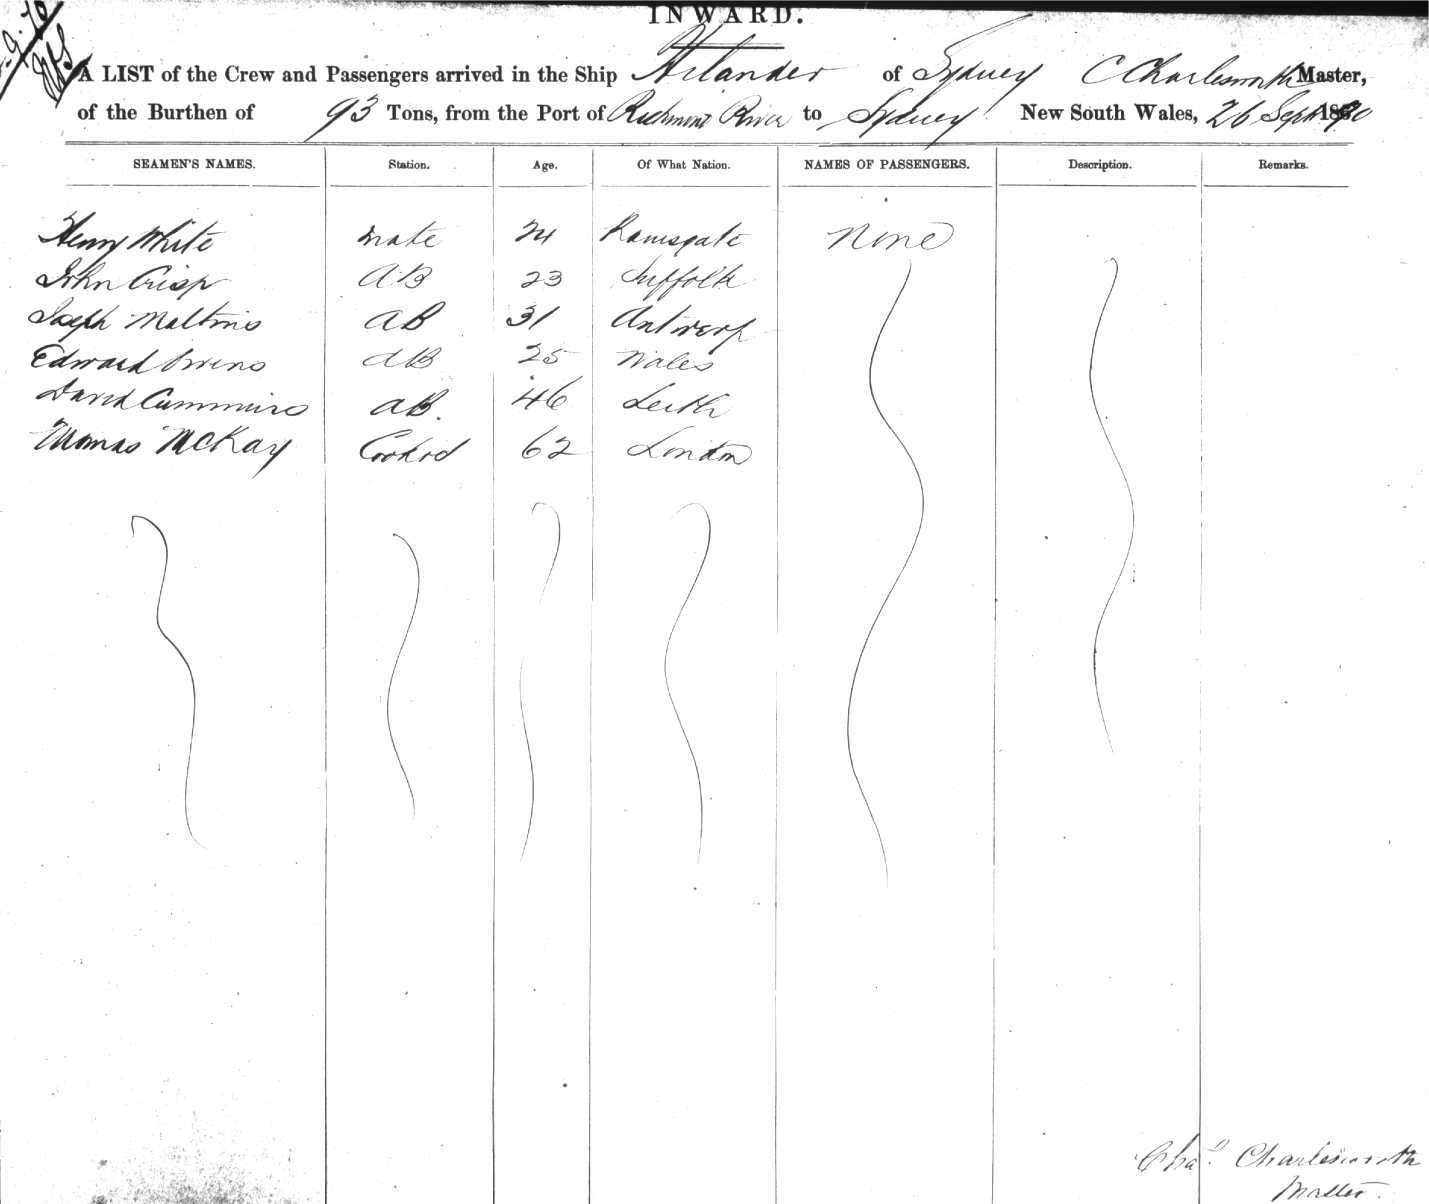 INWARD.
A LIST of the Crew and Passengers arrived in the Ship of Sydney C Charlesworth Master,
of the Burthen of 93 Tons, from the Port of Richmond River to Sydney New South Wales, 26 Sept 1870
SEAMEN'S NAMES. Station. Age. Of What Nation. NAMES OF PASSENGERS. Description. Remarks.
Henry White Mate 24 Ramsgate None
John Crisp AB 23 Suffolk
Joseph AB 31 Antwerp
Edward Owens AB 25 Wales
David Cummins AB. 46 Leith
Thomas McKay 62 London
Chas. Charlesworth
Master